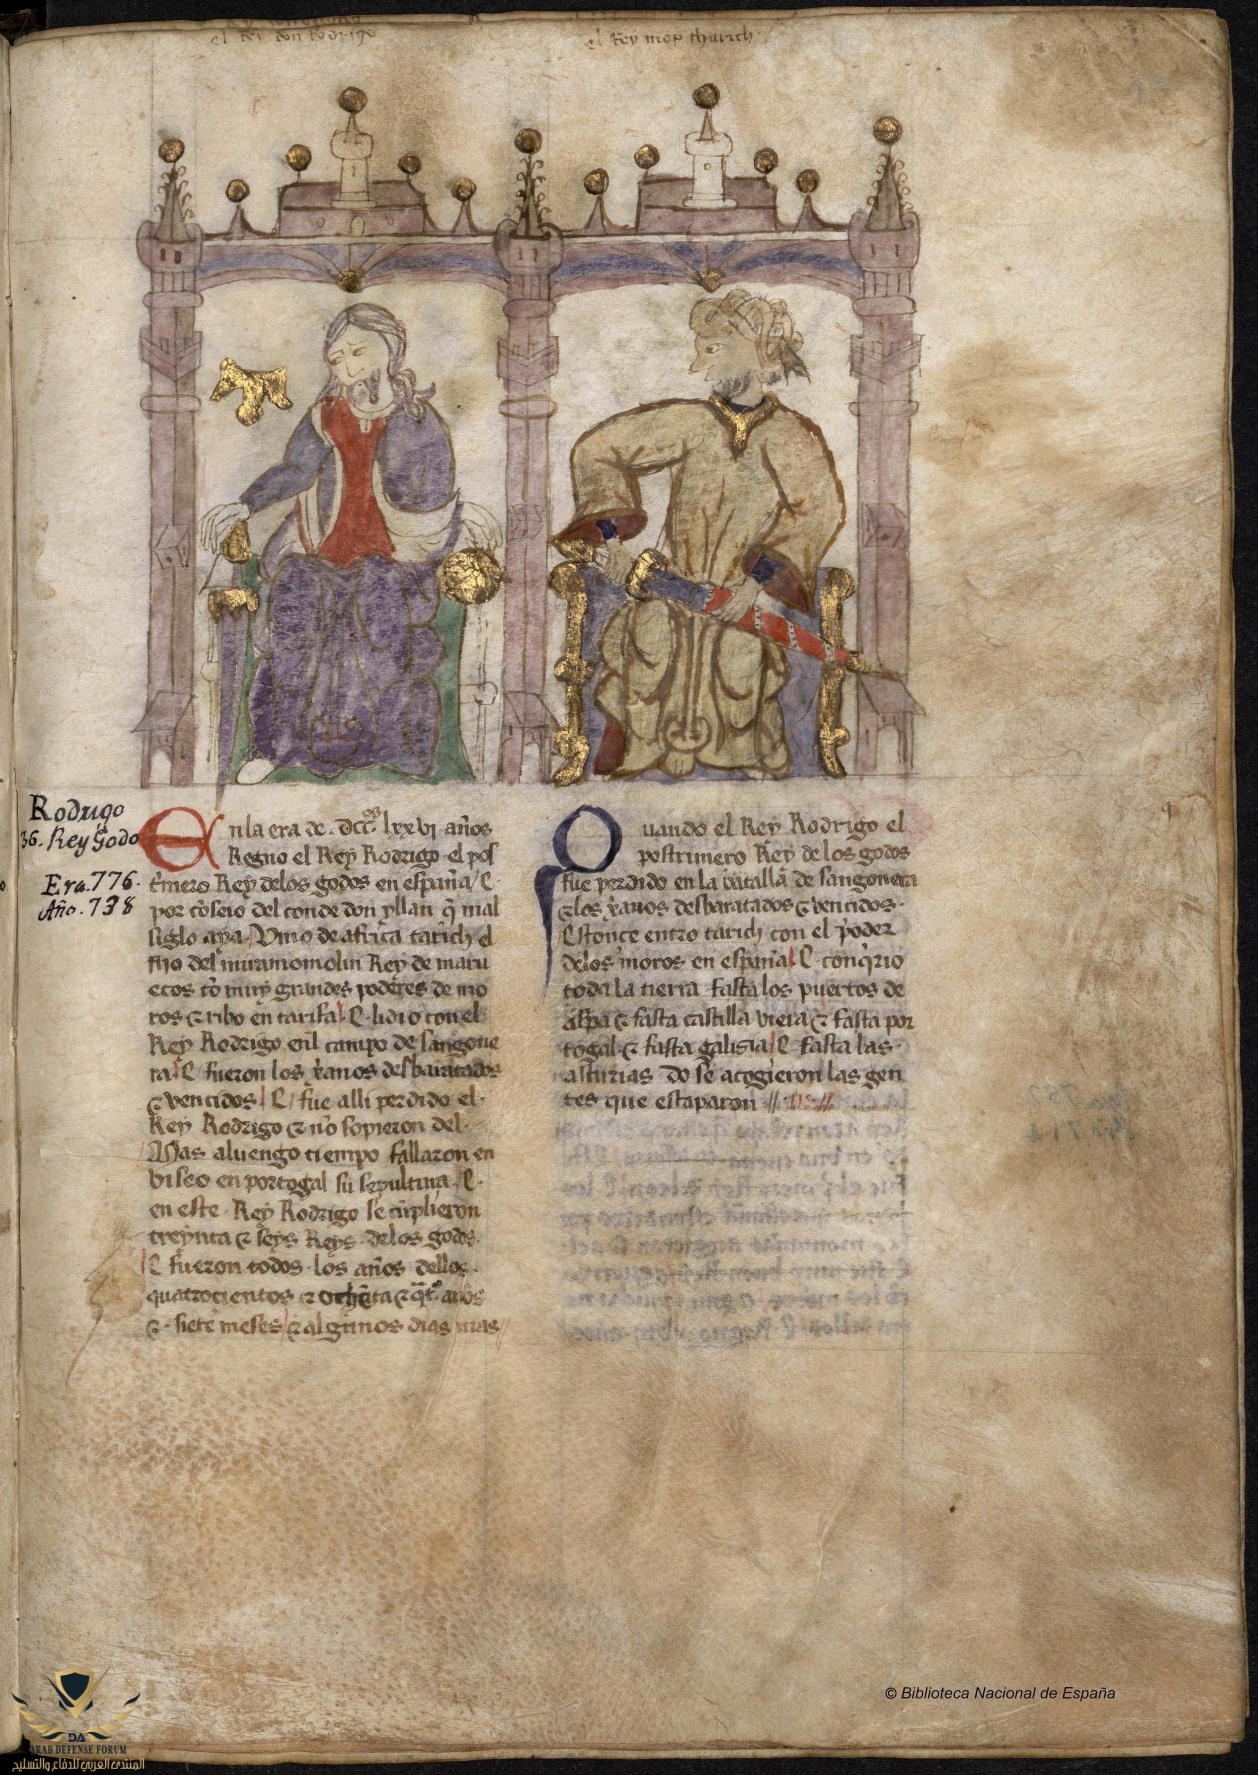 el Rey don Rodrigo
el Rey mor tharich
Rodrigo
36. Rey Godo
Era. 776.
Año. 738
En la era de. Dcc. lxxvi. años
Regno el Rey Rodrigo el pos
t'mero Rey delos godos en españa / E
por cõseio del conde don yllan q̃ mal
siglo aya. Vino de africa tarich el
fijo del miramomolin Rey de maru
ecos cõ muy grandes poderes de mo
ros & ribo en tarifa. E lidio con el
Rey Rodrigo enl campo de sangone
ra. E fueron los x̃anos desbaratados
& vencidos E / fue alli perdido el
Rey Rodrigo & nõ sopieron del
Mas a luengo tiempo fallaron en
viseo en portogal su sepultura. E
en este Rey Rodrigo se cũplieron
treynta & seys Reys delos godos
E fueron todos los años dellos
quatrocientos & ochẽta & años
& siete meses & algunos dias mas
Quando el Rey Rodrigo el
postrimero Rey delos godos
fue perdido en la batalla de sangonera
& los x̃anos desbaratados & vencidos
Estonce entro tarich con el poder
delos moros en españa E conq̃rio
toda la tierra fasta los puertos de
aspa & fasta castilla vieia & fasta por
togal & fasta galisia E fasta las
asturias do se acogieron las gen
tes que escaparon
© Biblioteca Nacional de España
DA
ARAB DEFENSE FORUM
المنتدى العربي للدفاع والتسليح